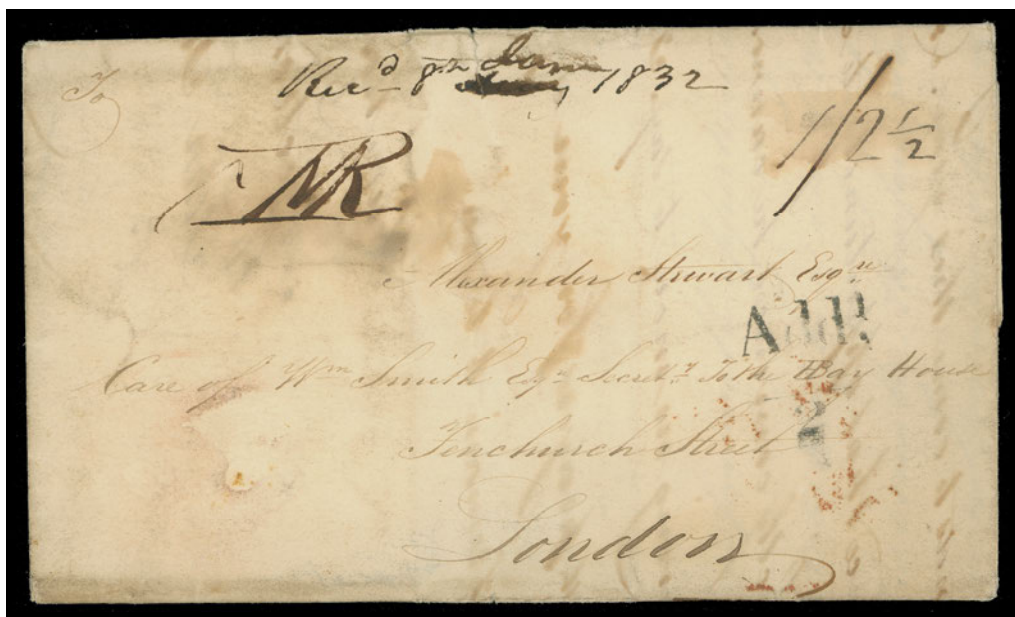 To
Rec^d 8th Jan 1832
1/2½
NR
Alexander Stewart Esq^re
Add^l
Care of W^m Smith Esq^r Secret^y To the Bay House
2
Fenchurch Street
London